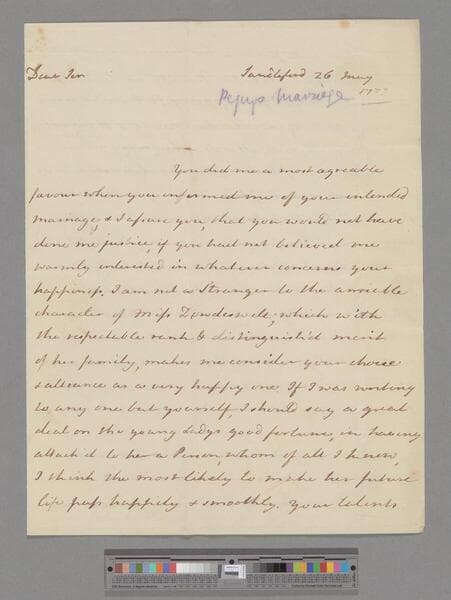 Dear Sir
Sandleford 26 May
1777
Pepys Marriage
You did me a most agreable
favour when you informed me of your intended
marriage, & I assure you, that you would not have
done me justice, if you had not believed me
warmly interested in whatever concerns your
happiness. I am not a Stranger to the amiable
character of Miss Dowdeswell, which with
the respectable rank & distinguish'd merit
of her family, makes me consider your choice
& alliance as a very happy one. If I was writing
to any one but yourself, I should say a great
deal on the young Ladys good fortune, in having
attach'd to her a Person, whom of all I know,
I think the most likely to make her future
life pass happily & smoothly. Your talents